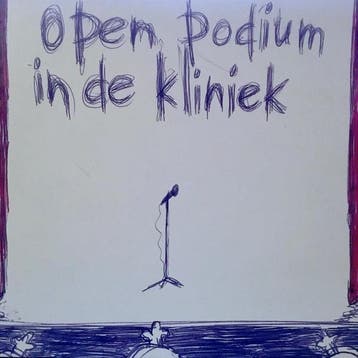 open podium
in de kliniek